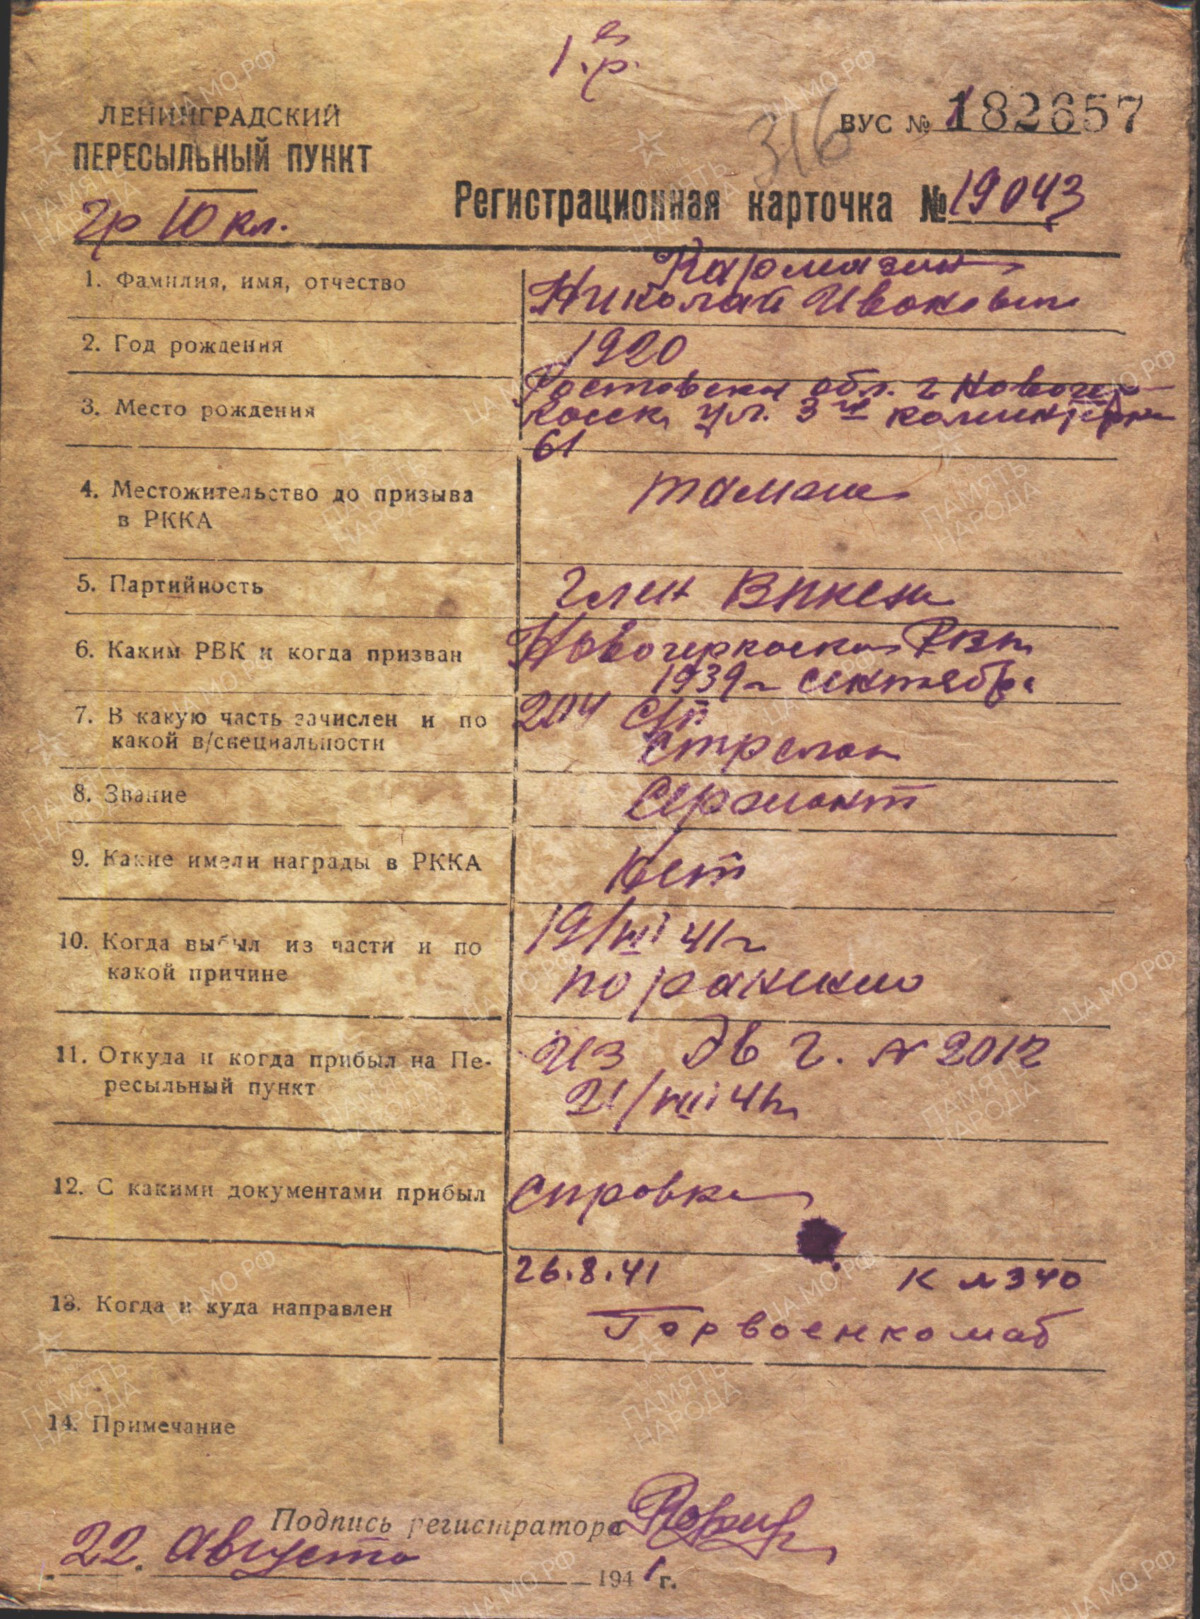 1.
е
.р.
ЛЕНИНГРАДСКИЙ
ПЕРЕСЫЛЬНЫЙ ПУНКТ
гр 10 кл.
316
ВУС № 182657
Регистрационная карточка № 19043
1. Фамилия, имя, отчество
Кармазин
Николай Иванович
2. Год рождения
1920
3. Место рождения
Ростовская обл. г. Новочер-
касск, ул. 3й
61
4. Местожительство до призыва
в РККА
там же
5. Партийность
член ВЛКСМ
6. Каким РВК и когда призван
Новочеркасским РВК
1939 г сентября
7. В какую часть зачислен и по
какой в/специальности
204 СП
стрелок
8. Звание
Сержант
9. Какие имели награды в РККА
Нет
10. Когда выбыл из части и по
какой причине
19/VIII 41 г
по ранению
11. Откуда и когда прибыл на Пе-
ресыльный пункт
Из г. № 2012
21/VIII 41 г.
12. С какими документами прибыл
справка
13. Когда и куда направлен
26.8.41 к № 340
Горвоенкомат
14. Примечание
Подпись регистратора
22. Августа 1941 г.
ПАМЯТЬ
НАРОДА
ЦА МО РФ